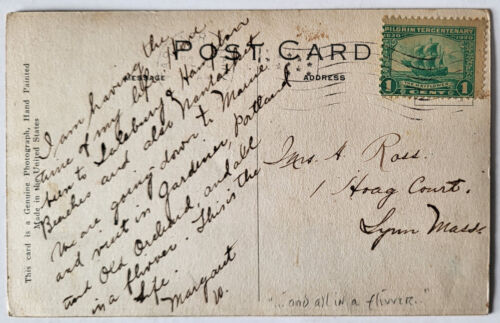 POST CARD
MESSAGE
ADDRESS
PILGRIM TERCENTENARY
1620 1920
THE MAYFLOWER
1 CENT 1
This card is a Genuine Photograph, Hand Painted
Made in the United States
I am having the
time of my life. Have
been to Salisbury & Hampton
Beaches and also Nantasket
We are going down to Maine
and visit in Gardiner, Portland
and Old Orchard, and all
in a flivver. This is the
life.
Margaret
W.
Mrs. A. Ross.
1 Hoag Court.
Lynn Mass.
"...and all in a flivver..."